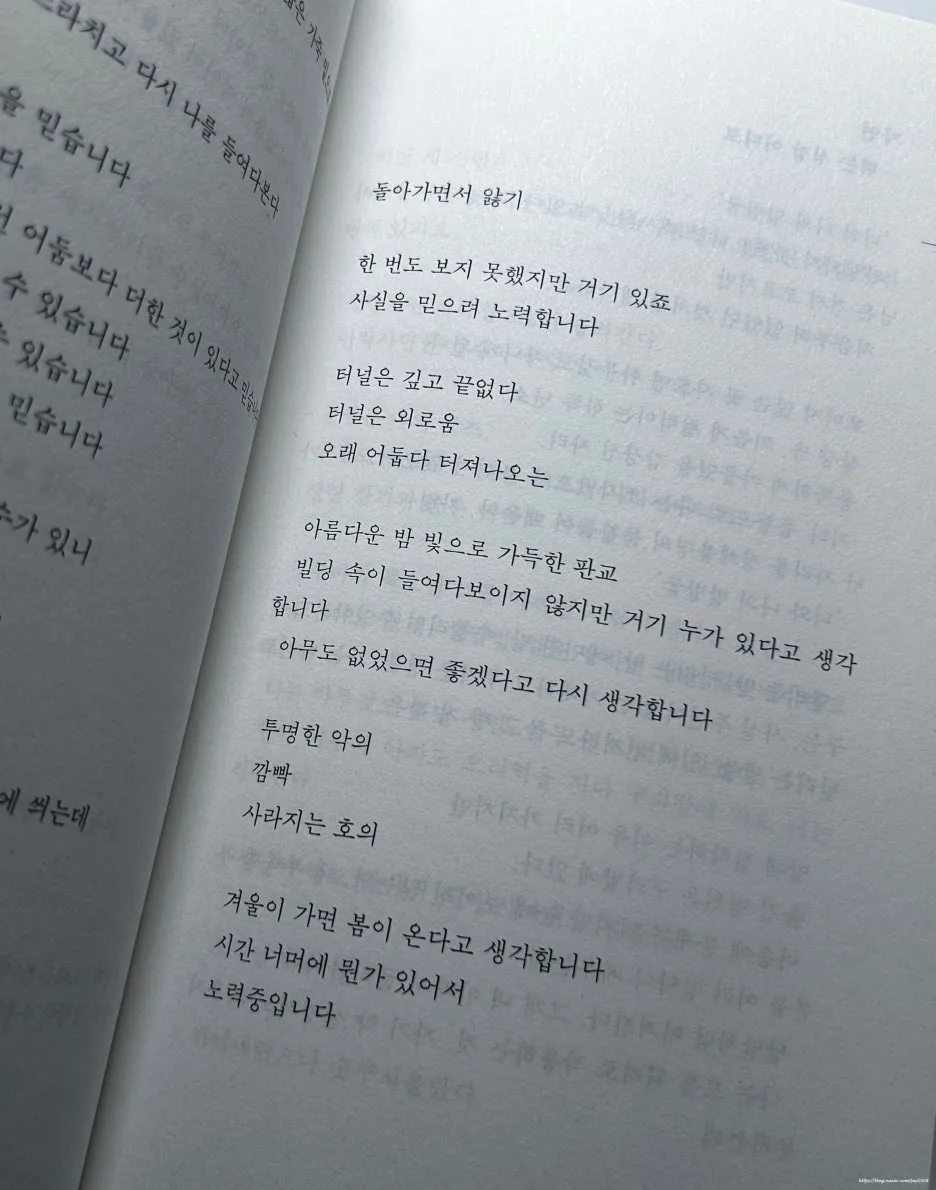 쓰라치고 다시 나를 들여다본다
을 믿습니다
다
어둠보다 더한 것이 있다고 믿습니
수 있습니다
수 있습니다
믿습니다
수가 있니
에 씌는데
돌아가면서 앓기
한 번도 보지 못했지만 거기 있죠
사실을 믿으려 노력합니다
터널은 깊고 끝없다
터널은 외로움
오래 어둡다 터져나오는
아름다운 밤 빛으로 가득한 판교
빌딩 속이 들여다보이지 않지만 거기 누가 있다고 생각
합니다
아무도 없었으면 좋겠다고 다시 생각합니다
투명한 악의
깜빡
사라지는 호의
겨울이 가면 봄이 온다고 생각합니다
시간 너머에 뭔가 있어서
노력중입니다